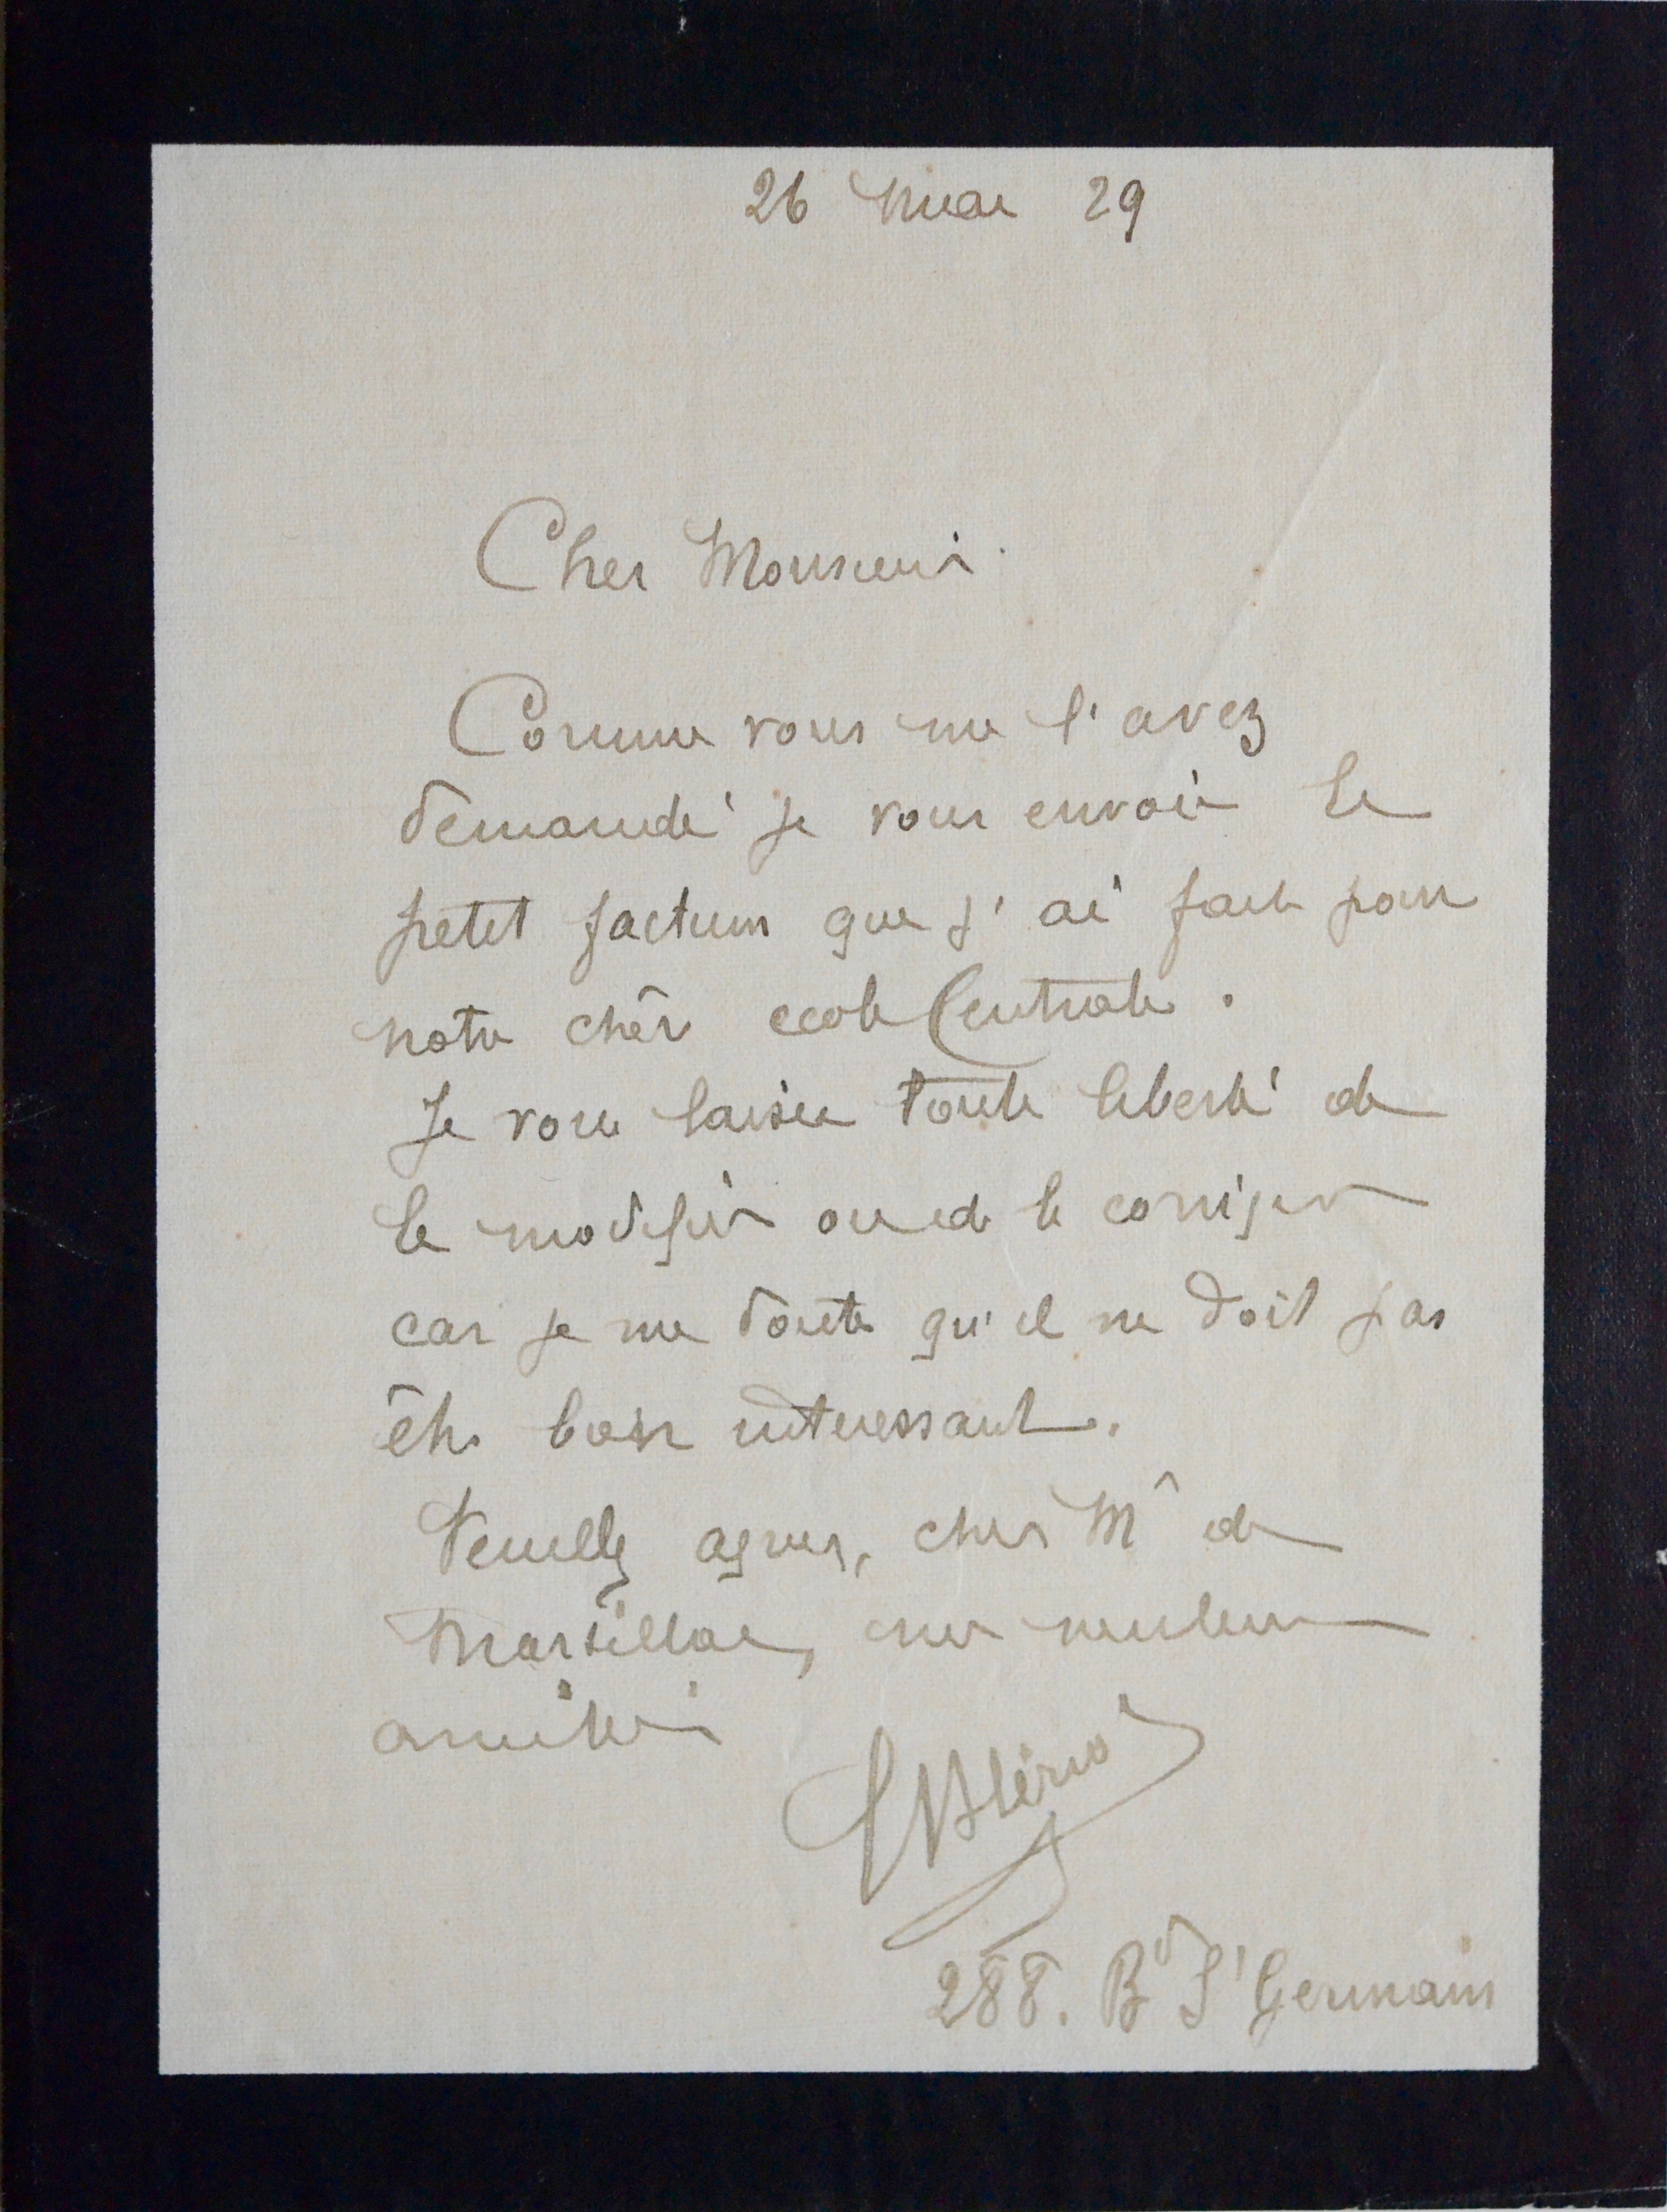 26 Mai 29
Cher Monsieur.
Comme vous me l'avez
demandé je vous envoie le
petit factum que j'ai fait pour
notre chère ecole Centrale.
Je vous laisse toute liberté de
le modifier ou de le corriger
car je me doute qu'il ne doit pas
être bien interessant.
Veuillez agréer, cher Mr de
Marsillac, mes meilleures
amitiés
LBlériot
288. Bd St Germain